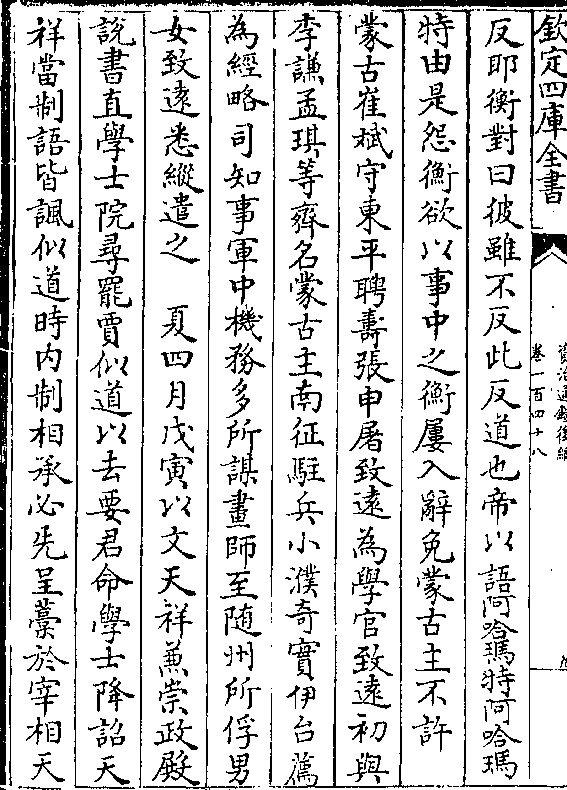 欽定四庫全書
資治通鑑後編
卷一百四十八
反耶衡對曰彼雖不反此反道也帝以語阿哈瑪特阿哈瑪
特由是怨衡欲以事中之衡屢入辭免蒙古主不許
蒙古崔斌守東平聘壽張申屠致遠為學官致遠初與
李謙孟琪等齊名蒙古主南征駐兵小濮奇實伊台薦
為經略司知事軍中機務多所謀畫師至随州所俘男
女致遠悉縱遣之　夏四月戊寅以文天祥兼崇政殿
說書直學士院尋罷賈似道以去要君命學士降詔天
祥當制語皆諷似道時内制相承必先呈藁於宰相天